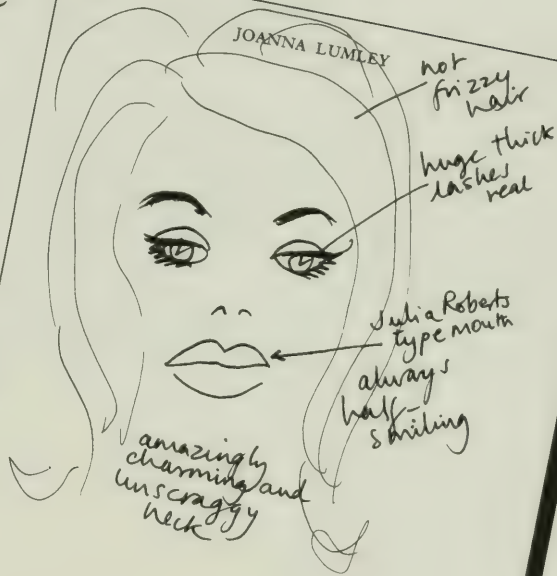 JOANNA LUMLEY
not
frizzy
hair
huge thick
lashes
real
Julia Roberts
type mouth
always
half-
smiling
amazingly
charming and
unscraggy
neck